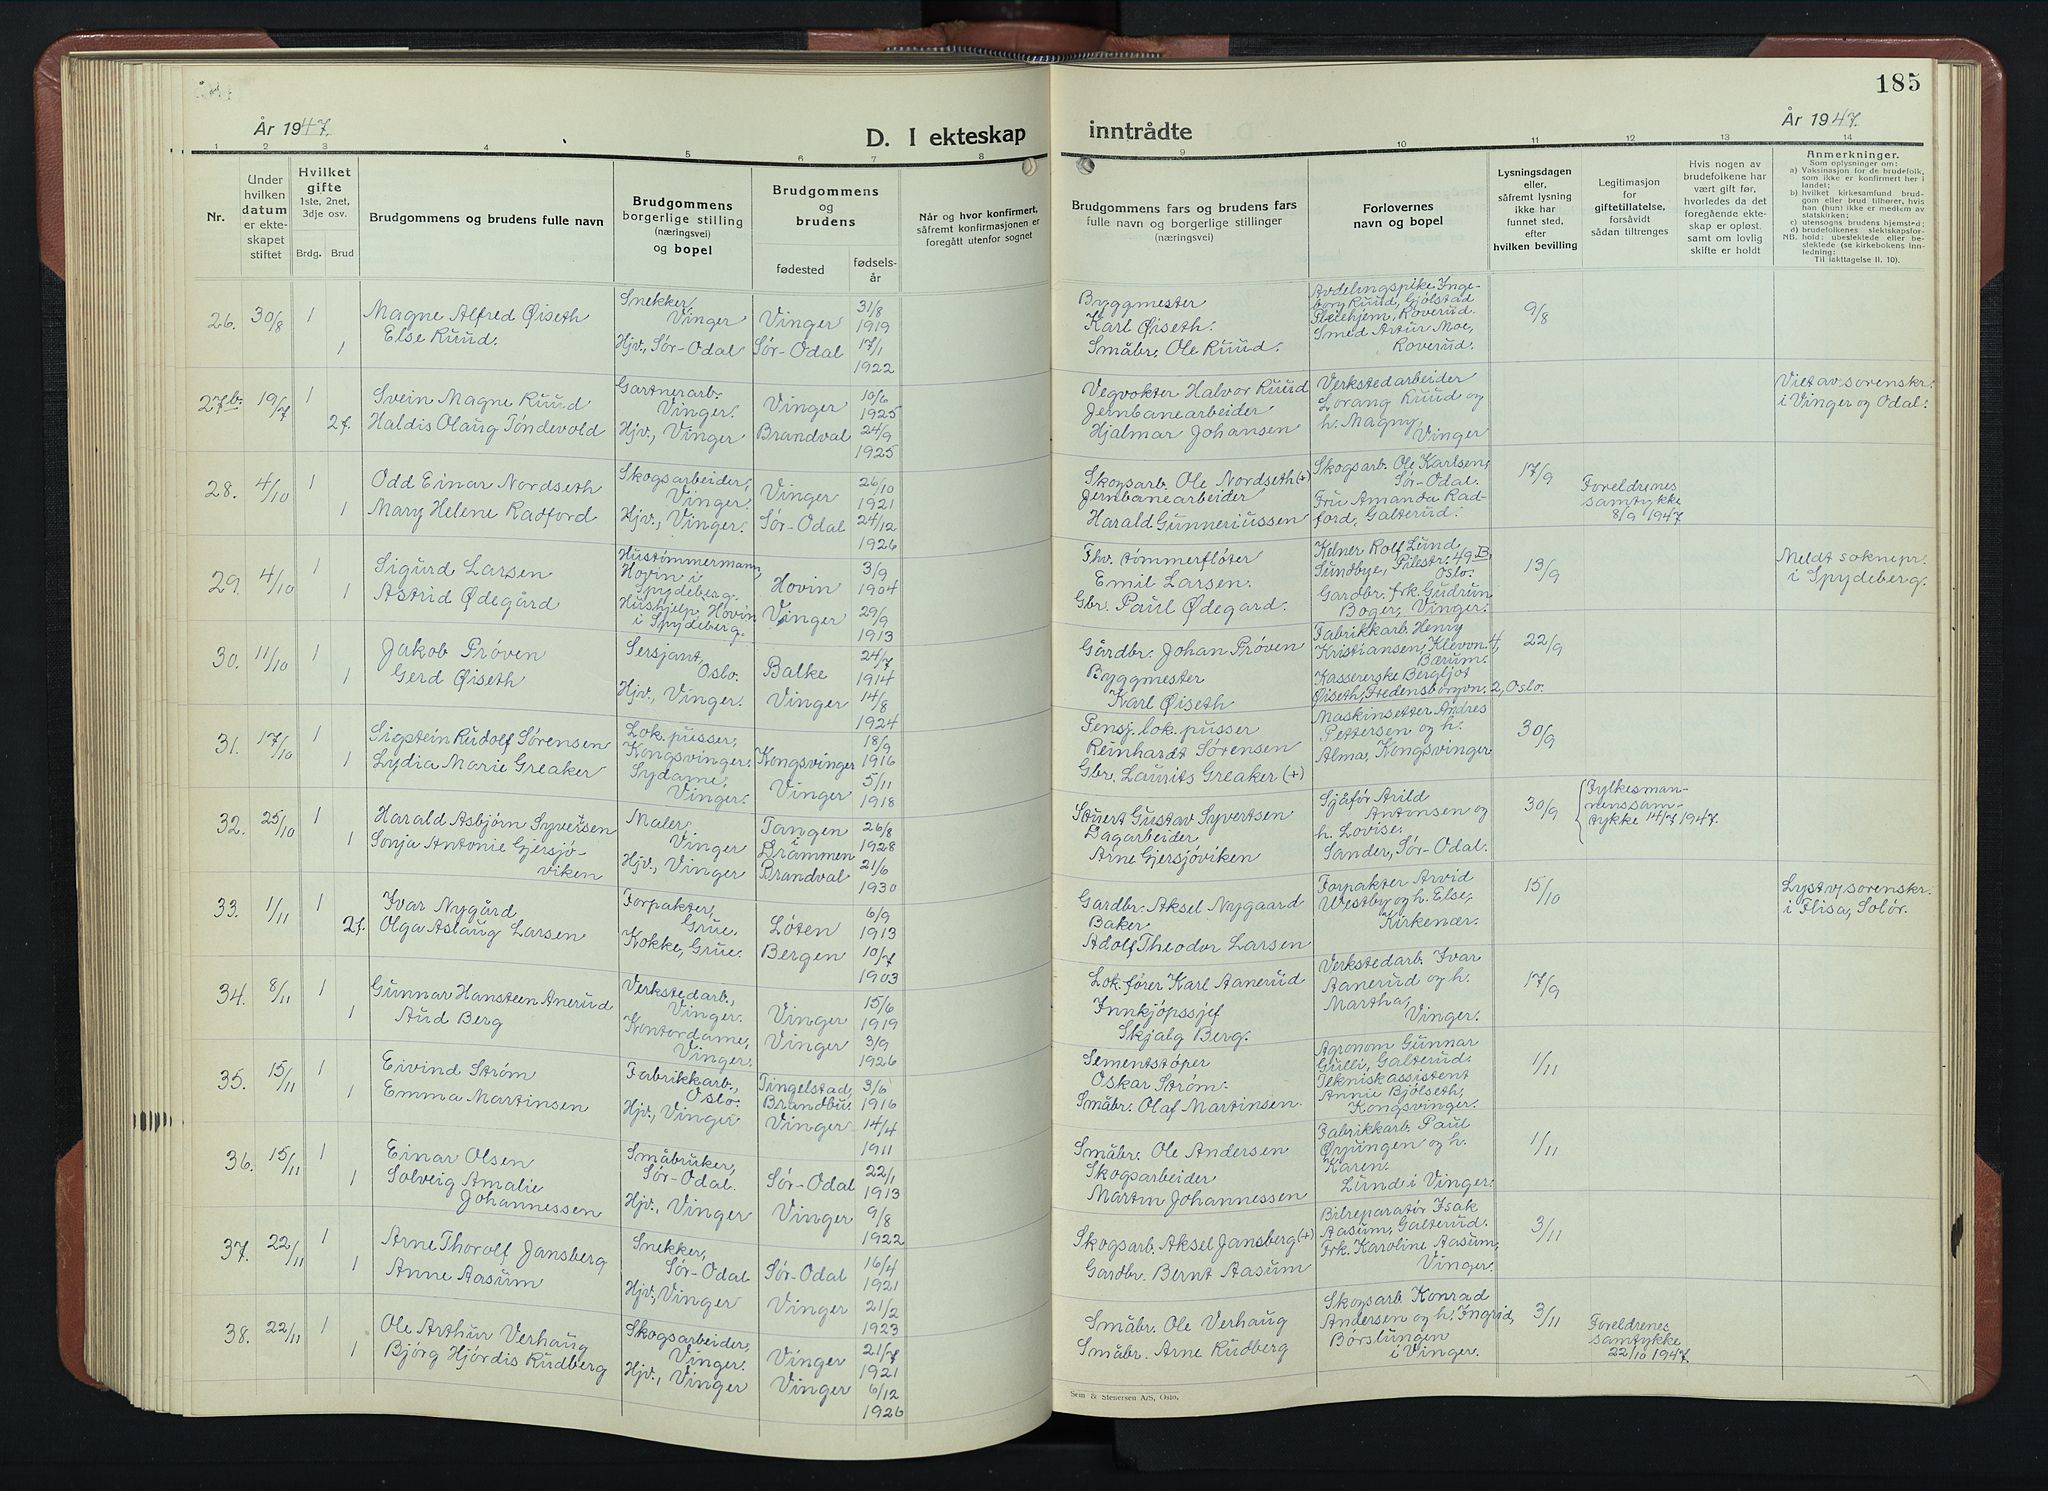 185
År 1947.
D. I ekteskap
inntrådte
År 1947.
1 2 3 4 5 6 7 8 9 10 11 12 13 14
Nr.
Under
hvilken
datum
er ekte-
skapet
stiftet
Hvilket
gifte
1ste, 2net,
3dje osv.
Brdg. Brud
Brudgommens og brudens fulle navn
Brudgommens
borgerlige stilling
(næringsvei)
og bopel
Brudgommens
og
brudens
fødested
fødsels-
år
Når og hvor konfirmert,
såfremt konfirmasjonen er
foregått utenfor sognet
Brudgommens fars og brudens fars
fulle navn og borgerlige stillinger
(næringsvei)
Forlovernes
navn og bopel
Lysningsdagen
eller,
såfremt lysning
ikke har
funnet sted,
efter
hvilken bevilling
Legitimasjon
for
giftetillatelse,
forsåvidt
sådan tiltrenges
Hvis nogen av
brudefolkene har
vært gift før,
hvorledes da det
foregående ekte-
skap er opløst,
samt om lovlig
skifte er holdt
Anmerkninger.
Som oplysninger om:
a) Vaksinasjon for de brudefolk,
som ikke er konfirmert her i
landet;
b) hvilket kirkesamfund brud-
gom eller brud tilhører, hvis
han (hun) ikke er medlem av
statskirken;
c) utensogns brudens hjemsted;
d) brudefolkenes slektskapsfor-
NB. hold: ubeslektede eller be-
slektede (se kirkebokens inn-
ledning;
Til iakttagelse II. 10).
26. 30/8 1 Magne Alfred Øiseth
Else Ruud.
1
Snekker,
Vinger
Hjv., Sør-Odal
Vinger
Sør-Odal
31/8
1919
17/1
1922
Byggmester
Karl Øiseth.
Småbr. Ole Ruud.
Avdelingspike Inge-
borg Ruud, Gjølstad
Pleiehjem, Roverud.
Smed Artur Moe,
Roverud.
9/8
27b. 19/7 1 Svein Magne Ruud
2f. Haldis Olaug Tøndevold
Gartnerarb.
Vinger.
Hjv., Vinger
Vinger
Brandval
10/6
1925
24/9
1925
Vegvokter Halvor Ruud
Jernbanearbeider
Hjalmar Johansen
Verkstedarbeider
Lorang Ruud og
h. Magny,
Vinger
Viet av sorenskr.
i Vinger og Odal.
28. 4/10 1 Odd Einar Nordseth
1 Mary Helene Radford
Skogsarbeider,
Vinger.
Hjv., Vinger.
Vinger
Sør-Odal
26/10
1921
24/12
1926
Skogsarb. Ole Nordseth (+)
Jernbanearbeider
Harald Gunneriussen
Skogsarb. Ole Karlsen,
Sør-Odal.
Fru Amanda Rad-
ford, Galterud.
17/9
Foreldrenes
samtykke
8/9 1947
29. 4/10 1 Sigurd Larsen
1 Astrid Ødegård
Hustømmermann,
Hovin i
Spydeberg.
Hushjelp, Hovin
i Spydeberg.
Hovin
Vinger
3/9
1904
29/9
1913
Fhv. tømmerfløter
Emil Larsen.
Gbr. Paul Ødegard.
Kelner Rolf Lund
Sundbye, Pilestr. 49 B,
Oslo.
Gardbr. frk. Gudrun
Boger, Vinger.
13/9
Meldt soknepr.
i Spydeberg.
30. 11/10 1 Jakob Prøven
1 Gerd Øiseth
Sersjant,
Oslo.
Hjv., Vinger.
Balke
Vinger
24/7
1914
14/8
1924
Gårdbr. Johan Prøven
Byggmester
Karl Øiseth
Fabrikkarb. Henry
Kristiansen, Klevvn. 4,
Bærum.
Kassererske Bergljot
Øiseth, Fredensborgvn. 2, Oslo.
22/9
31. 17/10 1 Sigstein Rudolf Sørensen
1 Lydia Marie Greaker
Lok. pusser,
Kongsvinger.
Sydame,
Vinger.
Kongsvinger
Vinger
18/9
1916
5/11
1918
Pensj. lok. pusser
Reinhardt Sørensen
Gbr. Laurits Greaker (+)
Maskinsetter Andres
Pettersen og h.
Alma, Kongsvinger
30/9
32. 25/10 1 Harald Asbjørn Syvertsen
1 Sonja Antonie Gjersjø-
viken
Maler,
Vinger
Hjv., Vinger
Tangen
Drammen
Brandval
26/8
1928
21/6
1930
Stuert Gustav Syvertsen
Dagarbeider
Arne Gjersjøviken
Sjåfør Arild
Antonsen og
h. Lovise,
Sander, Sør-Odal.
30/9
Fylkesman-
nens sam-
tykke 14/7 1947.
33. 1/11 1 Ivar Nygård
2f. Olga Aslaug Larsen
Forpakter,
Grue.
Kokke, Grue.
Løten
Bergen
6/9
1913
10/7
1903
Gardbr. Aksel Nygaard
Baker
Adolf Theodor Larsen
Forpakter Arvid
Westby og h. Else,
Kirkenær.
15/10
Lyst v/ sorenskr.
i Flisa, Solør.
34. 8/11 1 Gunnar Hansteen Anerud
1 Aud Berg
Verkstedarb.,
Vinger.
Kontordame,
Vinger.
Vinger
Vinger
15/6
1919
3/9
1926
Lok. fører Karl Aanerud
Innkjøpssjef
Skjalg Berg.
Verkstedarb. Ivar
Aanerud og h.
Martha,
Vinger.
17/9
35. 15/11 1 Eivind Strøm
1 Emma Martinsen
Fabrikkarb.,
Oslo.
Hjv., Vinger
Tingelstad,
Brandbu.
Vinger
3/6
1916
14/4
1911
Sementstøper
Oskar Strøm.
Småbr. Olaf Martinsen.
Agronom Gunnar
Gulli, Galterud.
Tekniskassistent
Annie Bjølseth,
Kongsvinger.
1/11
36. 15/11 1 Einar Olsen
1 Solveig Amalie
Johannessen
Småbruker,
Sør-Odal.
Hjv., Vinger
Sør-Odal
Vinger
22/1
1913
9/8
1922
Småbr. Ole Andersen
Skogsarbeider
Martin Johannessen
Fabrikkarb. Paul
Øyungen og h.
Karen.
Lund i Vinger.
1/11
37. 22/11 1 Arne Thorolf Jansberg
1 Anne Aasum
Snekker,
Sør-Odal
Hjv., Vinger
Sør-Odal
Vinger
16/4
1921
21/2
1923
Skogsarb. Aksel Jansberg (+)
Gardbr. Bernt Aasum
Bilreparatør Isak
Aasum, Galterud.
Frk. Karoline Aasum,
Vinger.
3/11
38. 22/11 1 Ole Arthur Verhaug
1 Bjørg Hjørdis Rudberg
Skogsarbeider,
Vinger.
Hjv., Vinger
Vinger
Vinger
21/7
1921
6/12
1926
Småbr. Ole Verhaug
Småbr. Arne Rudberg
Skogsarb. Konrad
Andersen og h. Ingrid,
Børslungen
i Vinger.
3/11
Foreldrenes
samtykke
22/10 1947.
Sem & Stenersen A/S, Oslo.